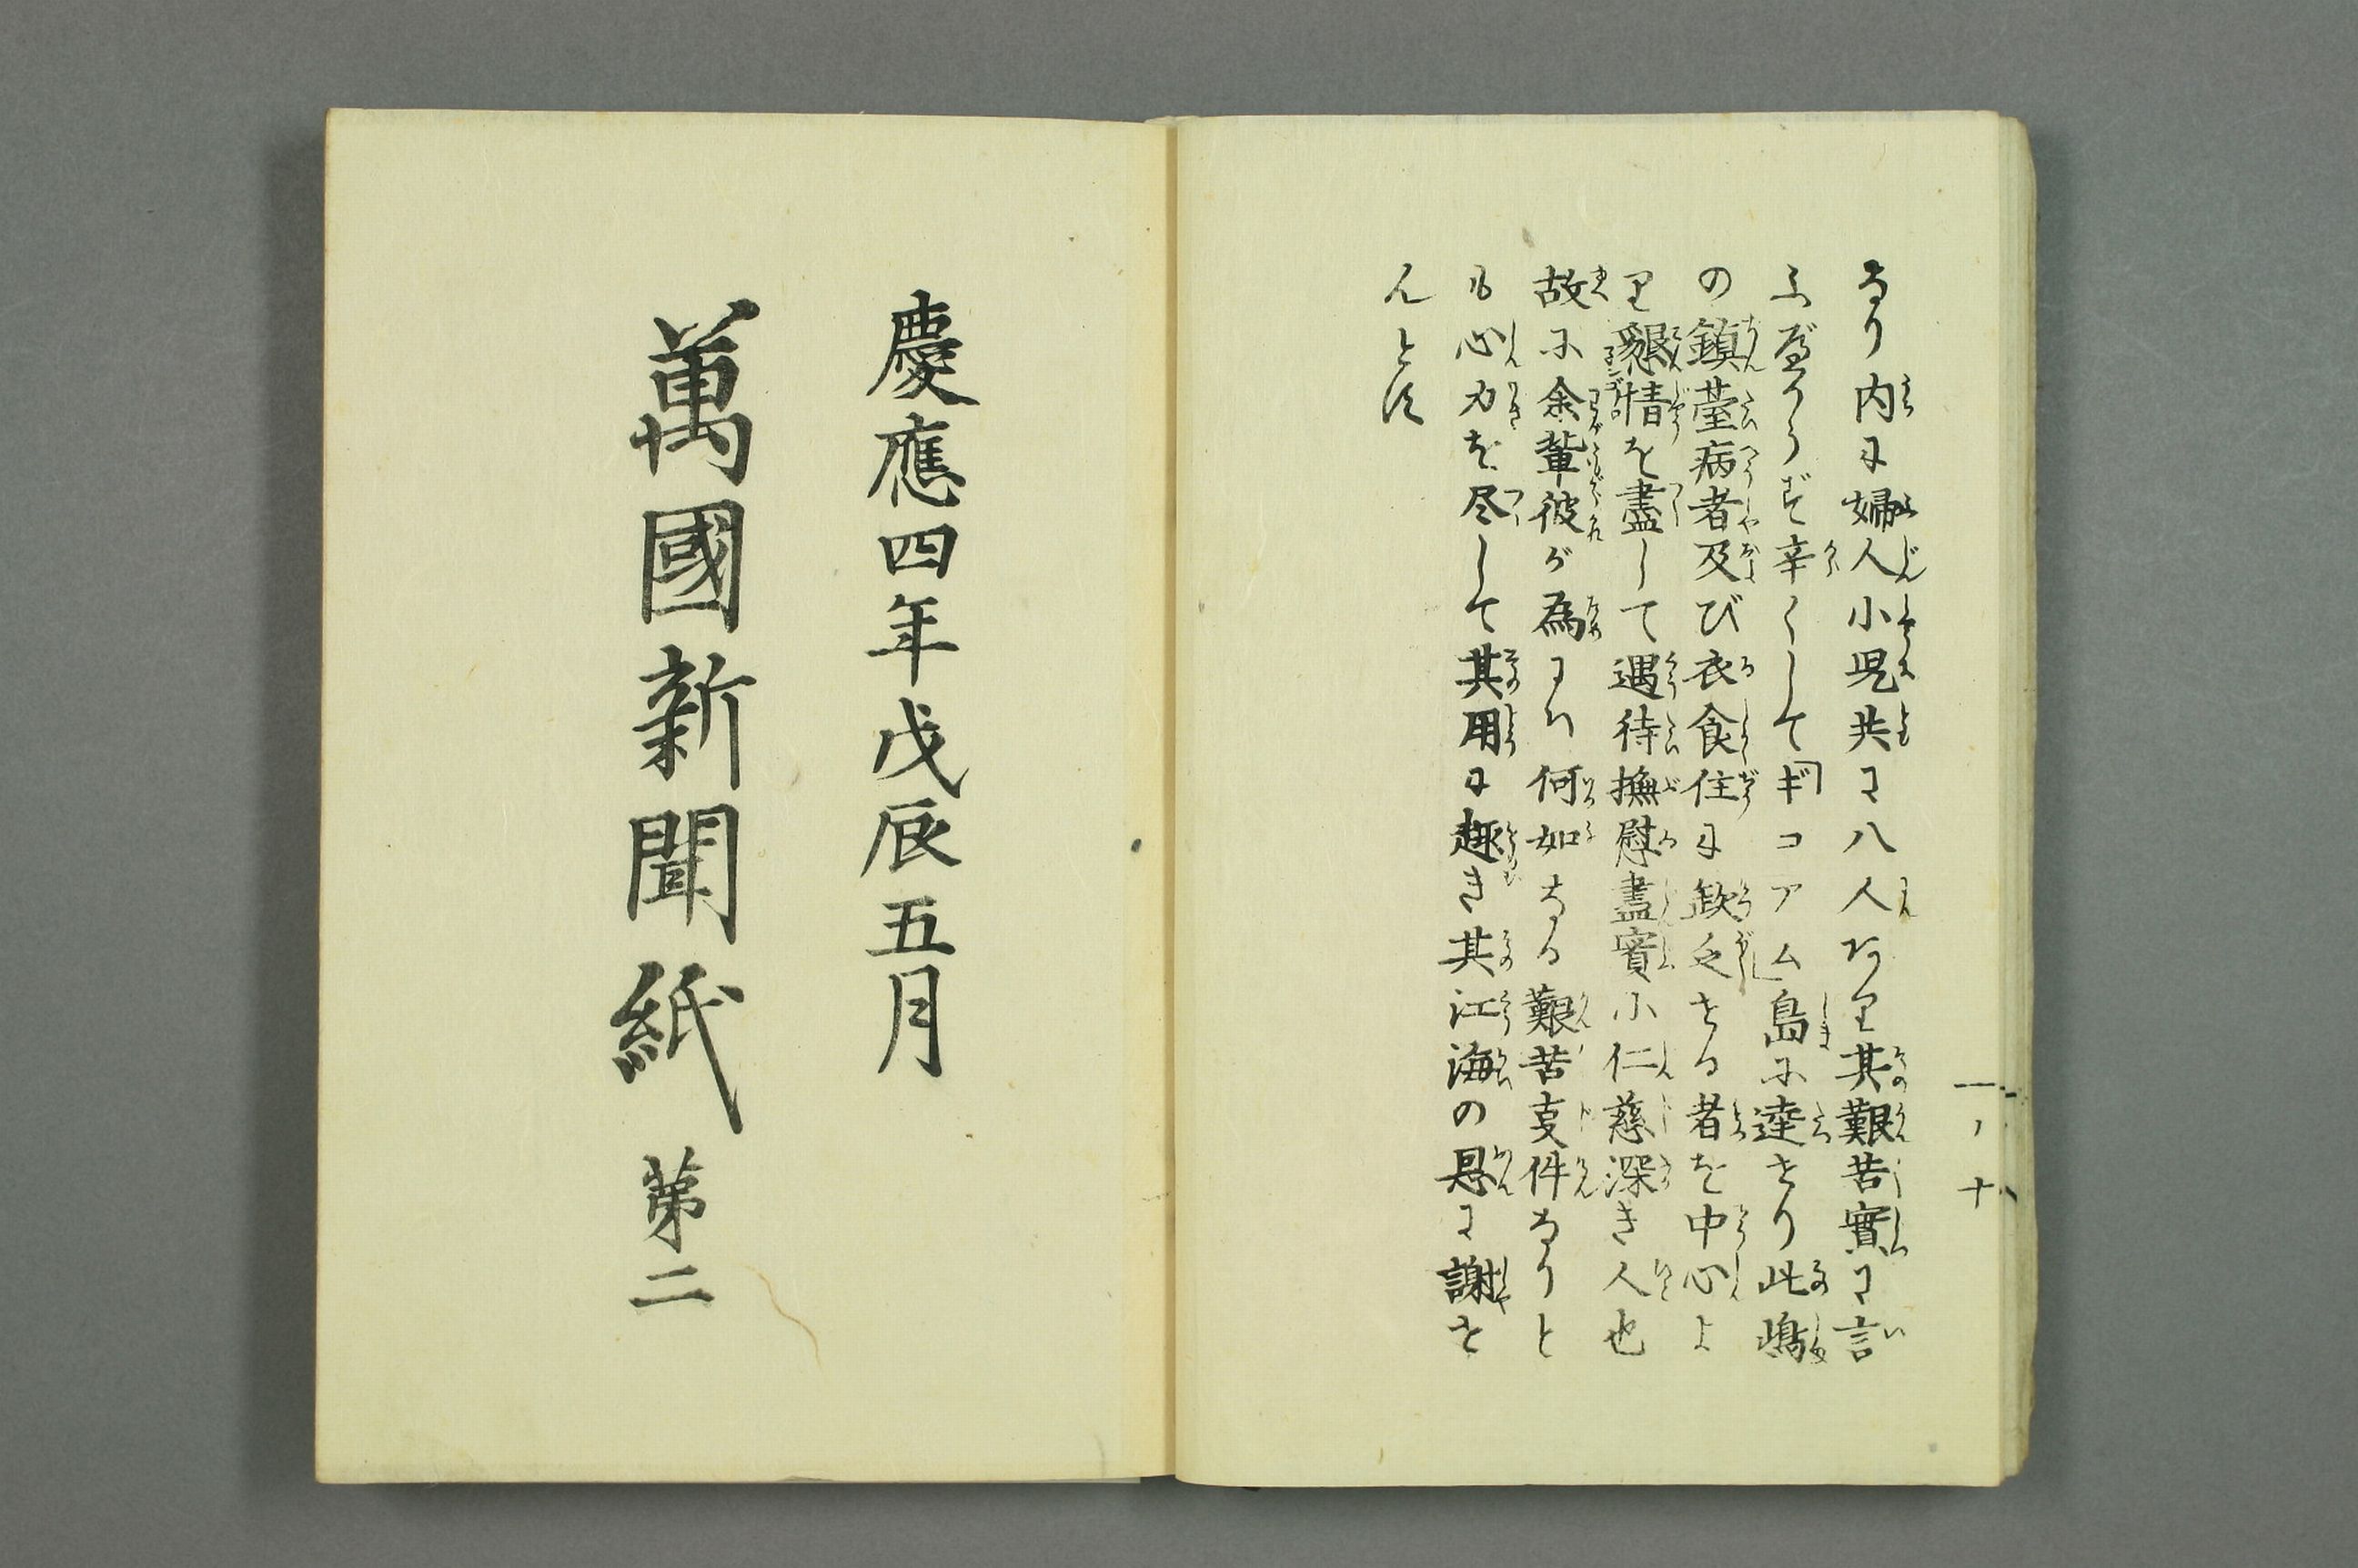 一ノ十
なり内に婦人小児共に八人あり其艱苦實に言
ふべからず辛くして「ギコアム」島に達せり此嶋
の鎮臺病者及び衣食住に缺乏せる者を中心よ
り懇情を盡して遇待撫慰盡實に仁慈深き人也
故に余輩彼が為には何如なる艱苦叓件なりと
も心力を尽して其用に趣き其江海の恩に謝せ
んとす
慶應四年戊辰五月
萬國新聞紙 第二